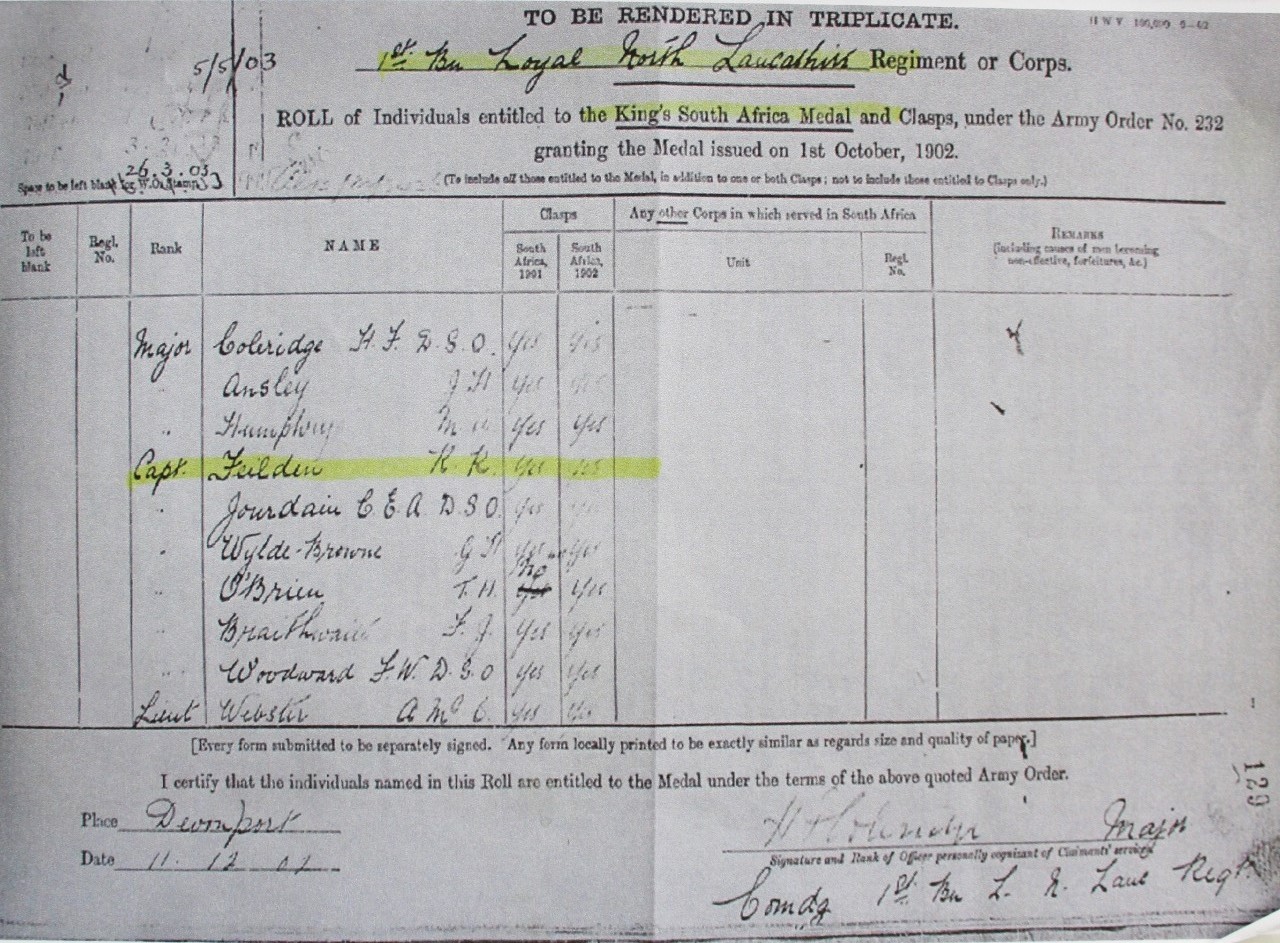 TO BE RENDERED IN TRIPLICATE.
5/5/03
1st. Bn Loyal North Lancashire Regiment or Corps.
ROLL of Individuals entitled to the King's South Africa Medal and Clasps, under the Army Order No. 232
granting the Medal issued on 1st October, 1902.
26.3.03
Space to be left blank for W.O. Stamp
(To include all those entitled to the Medal, in addition to one or both Clasps; not to include those entitled to Clasps only.)
To be left blank Regl. No. Rank NAME Clasps Any other Corps in which served in South Africa REMARKS
South Africa, 1901 South Africa, 1902 Unit Regl. No. (including causes of men becoming non-effective, forfeitures, &c.)
Major Coleridge H. F. D. S. O. Yes Yes
" Ansley J H Yes Yes
" Humphry M Yes Yes
Capt. Feilden R. K. Yes Yes
" Jourdain C. E. A. D S O. Yes Yes
" Wylde-Browne G H Yes Yes
No
" O'Brien T. H. Yes Yes
" Braithwaite F. J. Yes Yes
" Woodward F. W. D. S. O Yes Yes
Lieut Webster A Mc C. Yes Yes
[Every form submitted to be separately signed. Any form locally printed to be exactly similar as regards size and quality of paper.]
I certify that the individuals named in this Roll are entitled to the Medal under the terms of the above quoted Army Order.
Place Devonport
H F Coleridge Major
Signature and Rank of Officer personally cognizant of Claimants' services
Date 11. 12 02
Comdg 1st. Bn L. N. Lanc Regt.
129